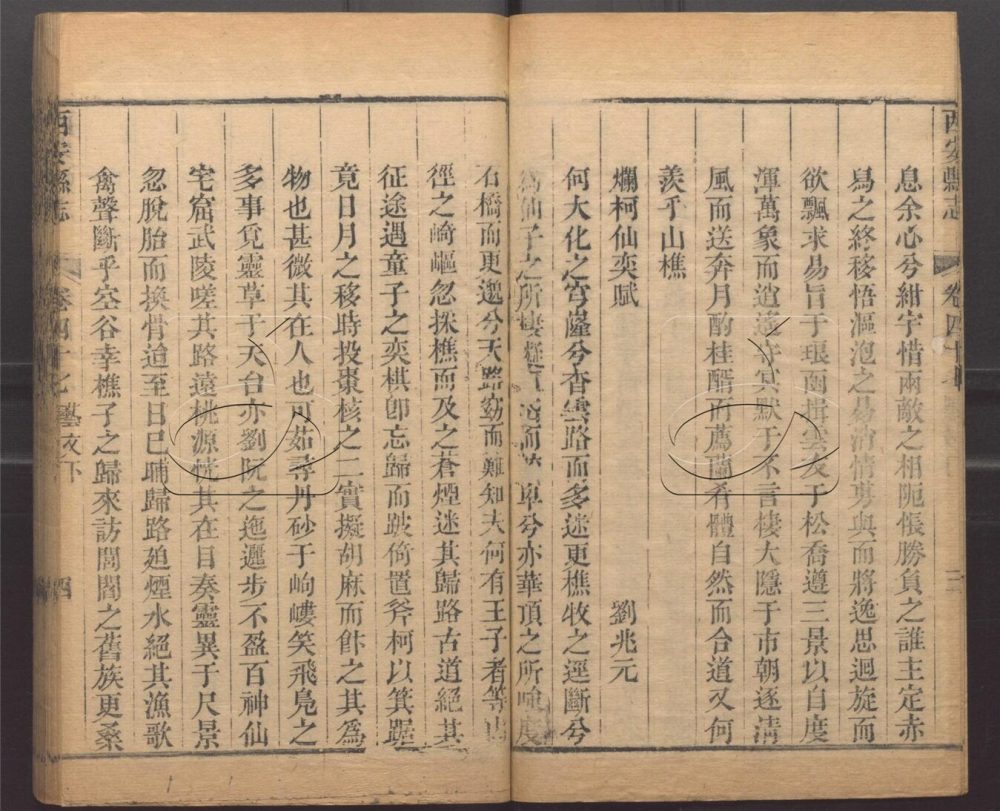 西安縣志 卷四十
息余心兮紺宇惜兩敵之相阨悵勝負之誰主定赤
舄之終移悟漚泡之易消情夷與而將逸思迴旋而
欲飄求易旨于琅函揖雲友于松喬遵三景以自度
渾萬象而逍遙守冥默于不言棲大隱于市朝逐清
風而送奔月酌桂醑而薦蘭肴體自然而合道又何
羨乎山樵
爛柯仙奕賦 劉兆元
何大化之穹窿兮杳雲路而多迷更樵牧之逕斷兮
仙子之所棲 兮亦華頂之所 度
石橋而更邈兮天路 而難知夫何有王子者等
徑之崎嶇忽採樵而及之蒼煙迷其歸路古道絕其
征途遇童子之奕棋卽忘歸而跛倚置斧柯以箕踞
竟日月之移時投棗核之二實擬胡麻而飰之其為
物也甚微其在人也可茹尋丹砂于岣嶁笑飛鳧之
多事覓靈草于天台亦劉阮之迤邐步不盈百神仙
宅窟武陵嗟其路遠桃源恍其在目奏靈異于尺景
忽脫胎而換骨迨至日巳晡歸路廹煙水絕其漁歌
禽聲斷乎空谷幸樵子之歸來訪閭閻之舊族更桑
西安縣志 卷四十 藝文下 四